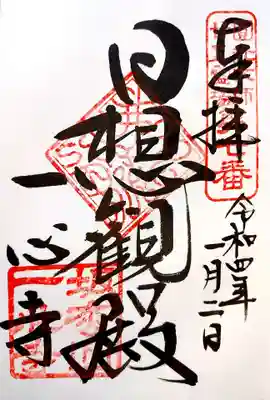 奉拝
令和四年
一月二日
日想観殿
一心寺